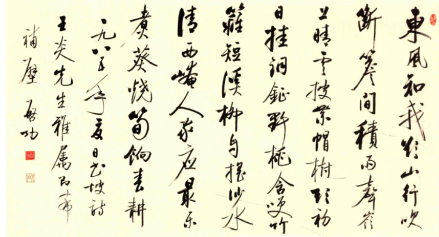 東風知我欲山行吹
斷簷間積雨聲嶺
上晴雲披絮帽樹頭初
日挂銅鉦野桃含咲竹
籬短溪柳自搖沙水
清西崦人家應最樂
煮葵燒筍餉春耕
一九八五年夏日書坡詩
王炎先生雅屬即希
補壁 啟功